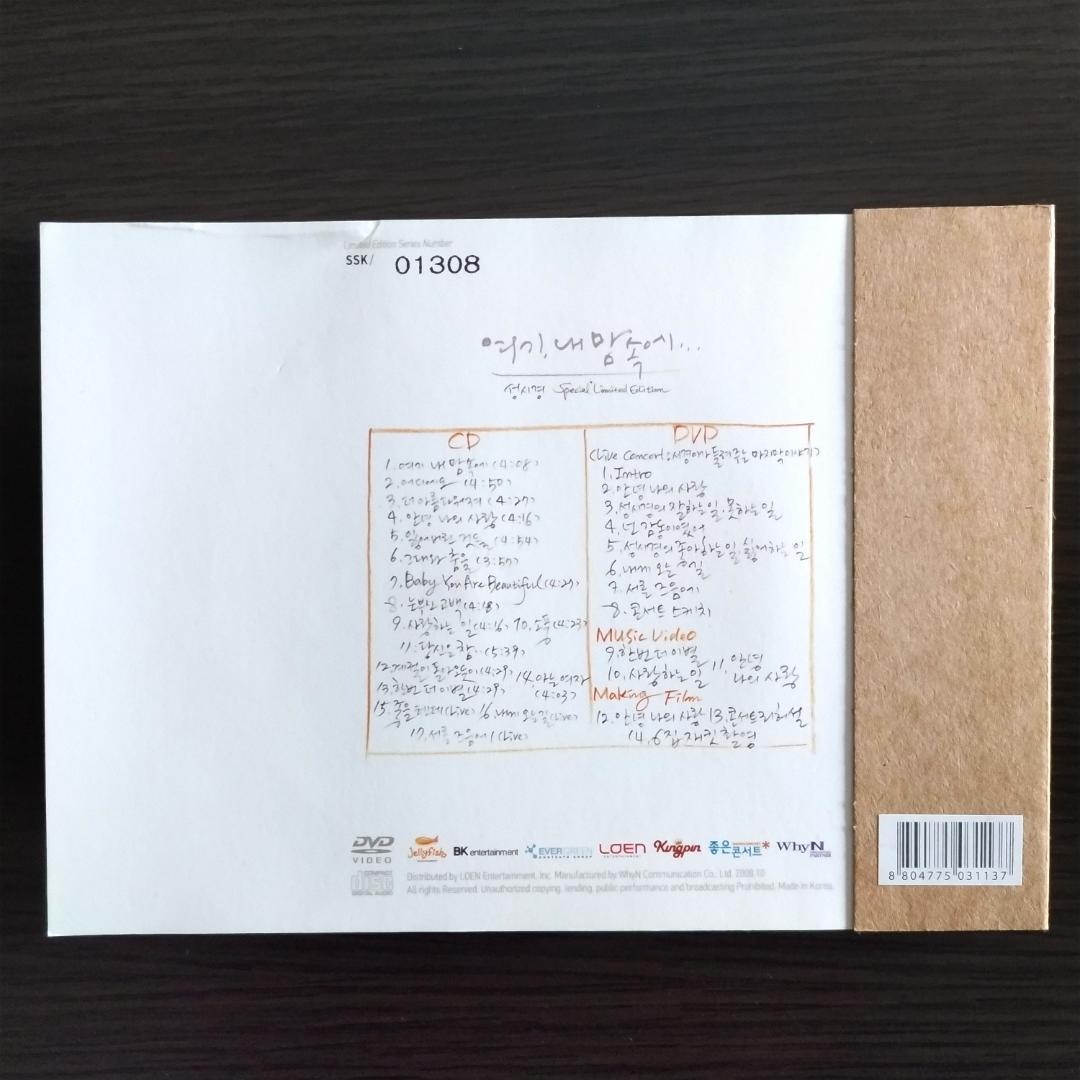 Limited Edition Series Number
SSK/ 01308
여기, 내 맘 속에...
성시경 Special Limited Edition
CD
1. 여기 내 맘 속에 (4:08)
2. 어디에도 (4:50)
3. 더 아름다워져 (4:27)
4. 안녕 나의 사랑 (4:16)
5. 잃어버린 것들 (4:54)
6. 그대와 춤을 (3:57)
7. Baby You Are Beautiful (4:27)
8. 눈부신 고백 (4:18)
9. 사랑하는 일 (4:16) 10. 소풍 (4:23)
11. 당신은 참.. (5:39)
12. 계절이 돌아오듯이 (4:29)
13. 한번 더 이별 (4:29) 14. 아는 여자 (4:03)
15. 죽을텐데 (Live) 16. 내게 오는 길 (Live)
17. 서른 즈음에 (Live)
DVD
(Live Concert : 시경이가 들려주는 마지막 이야기)
1. Intro
2. 안녕 나의 사랑
3. 성시경의 잘하는 일, 못하는 일
4. 넌 감동이었어
5. 성시경의 좋아하는 일, 싫어하는 일
6. 내게 오는 길
7. 서른 즈음에
8. 콘서트 스케치
Music Video
9. 한번 더 이별
10. 사랑하는 일 11. 안녕 나의 사랑
Making Film
12. 안녕 나의 사랑 13. 콘서트 리허설
14. 6집 재킷 촬영
DVD VIDEO
Jellyfish
BK entertainment
EVERGREEN
LOEN ENTERTAINMENT
Kingpin
좋은콘서트*
WhyN
COMPACT disc DIGITAL AUDIO
Distributed by LOEN Entertainment, Inc. Manufactured by WhyN Communication Co., Ltd. 2008.10
All rights Reserved. Unauthorized copying, lending, public performance and broadcasting Prohibited. Made in Korea.
8 804775 031137